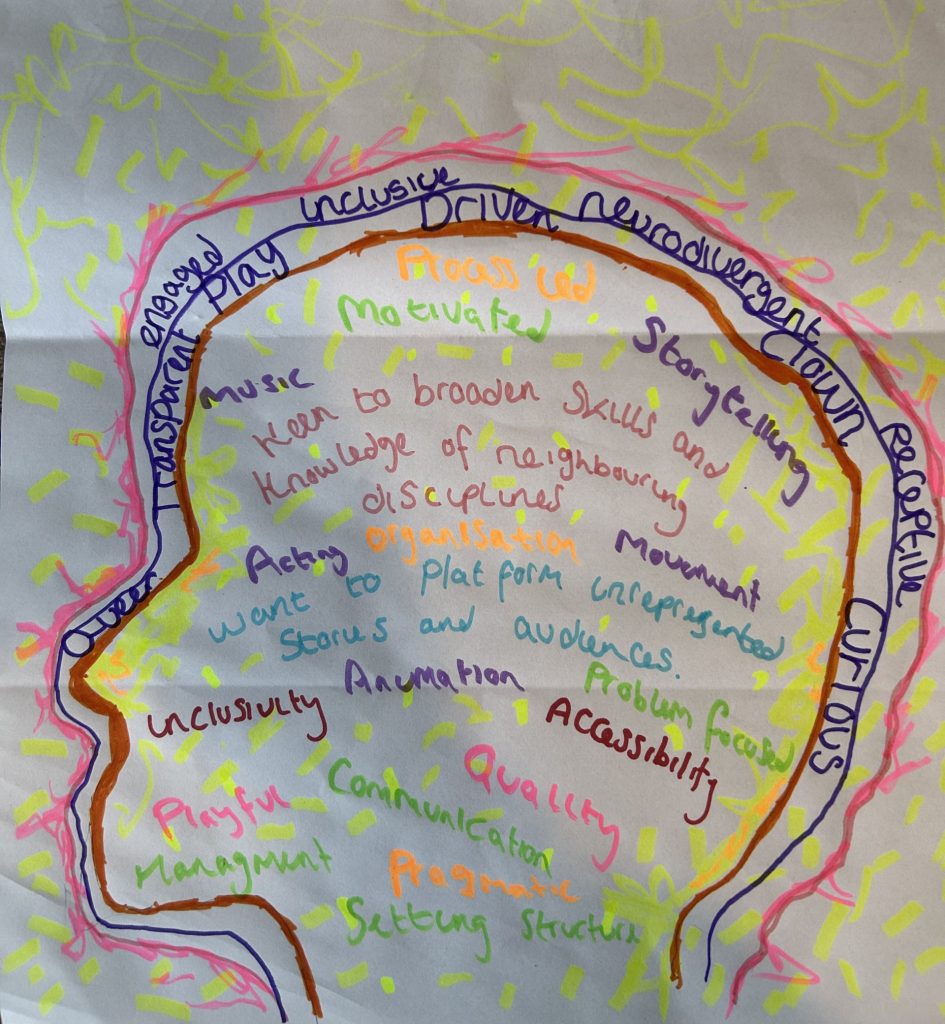 inclusive
Driven
neurodivergent
engaged
Play
Transparent
Clown
Receptive
Queer
Curious
Process led
Motivated
Storytelling
Music
Keen to broaden skills and
knowledge of neighbouring
disciplines
organisation
Acting
Movement
want to platform unrepresented
stories and audiences.
Animation
Problem focused
inclusivity
Accessibility
Quality
Playful
Communication
Managment
Pragmatic
Setting structure